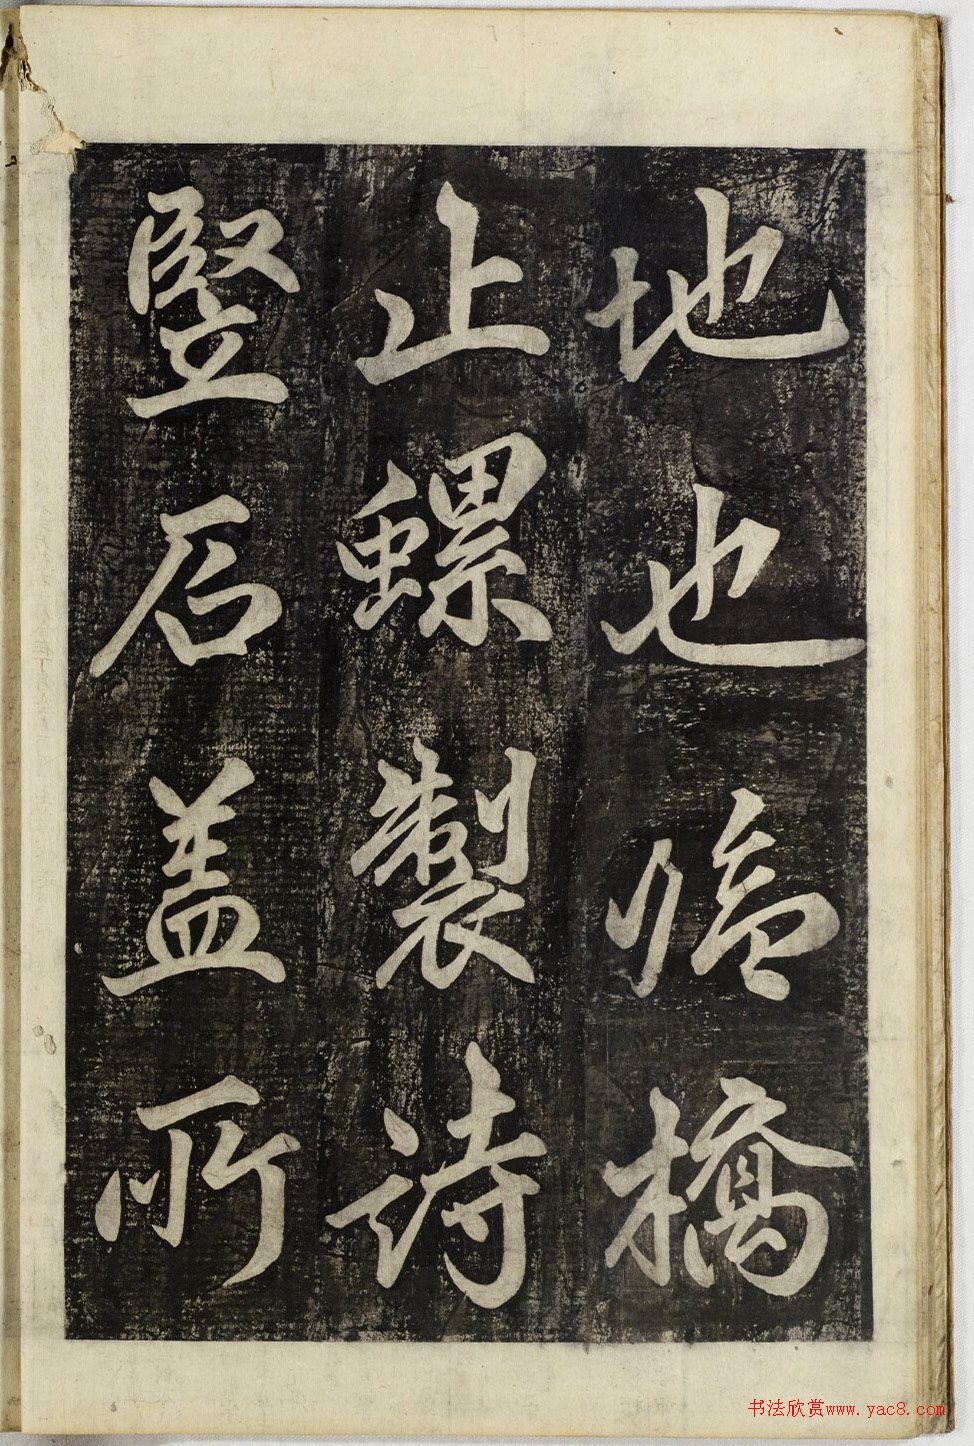 地也臨橋
止螺製詩
竪石盖所
书法欣赏www.yac8.com